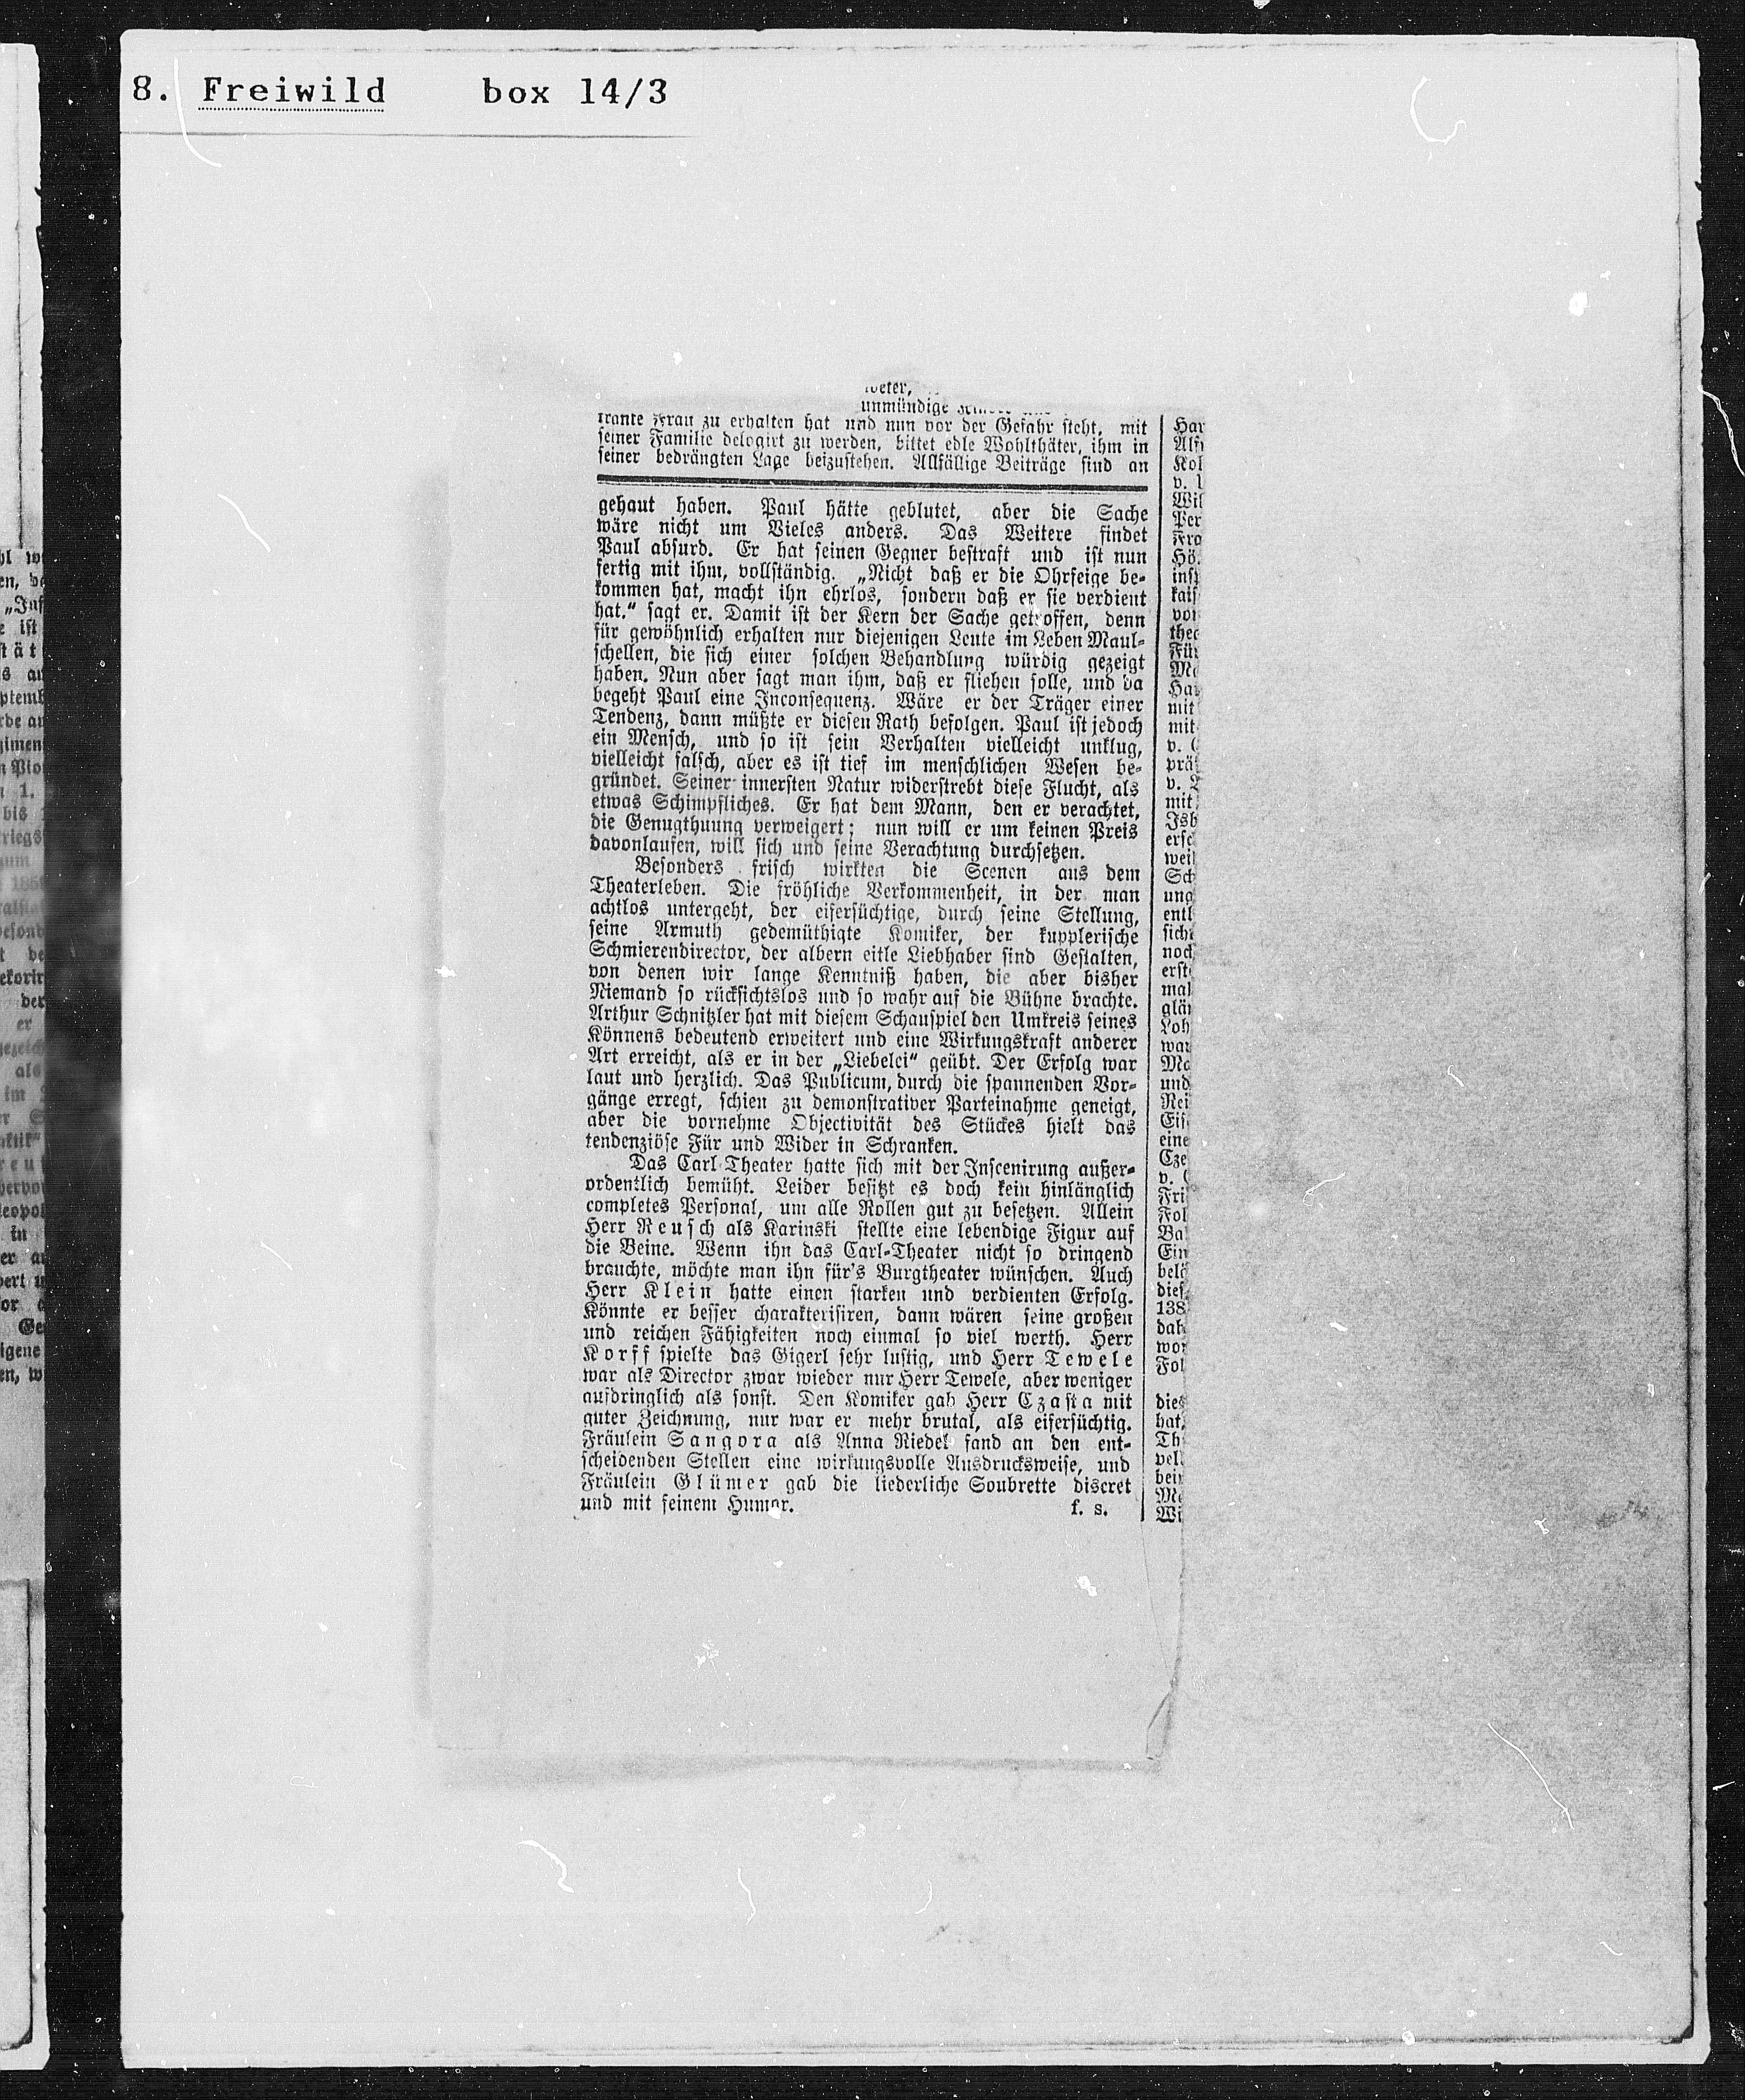 8. Freiwild box 14/3
unmündige
kranke Frau zu erhalten hat und nun vor der Gefahr steht, mit
seiner Familie delogirt zu werden, bittet edle Wohlthäter, ihm in
seiner bedrängten Lage beizustehen. Allfällige Beiträge sind an
gehaut haben. Paul hätte geblutet, aber die Sache
wäre nicht um Vieles anders. Das Weitere findet
Paul absurd. Er hat seinen Gegner bestraft und ist nun
fertig mit ihm, vollständig. „Nicht daß er die Ohrfeige be-
kommen hat, macht ihn ehrlos, sondern daß er sie verdient
hat.“ sagt er. Damit ist der Kern der Sache getroffen, denn
für gewöhnlich erhalten nur diejenigen Leute im Leben Maul-
schellen, die sich einer solchen Behandlung würdig gezeigt
haben. Nun aber sagt man ihm, daß er fliehen solle, und da
begeht Paul eine Inconsequenz. Wäre er der Träger einer
Tendenz, dann müßte er diesen Rath befolgen. Paul ist jedoch
ein Mensch, und so ist sein Verhalten vielleicht unklug,
vielleicht falsch, aber es ist tief im menschlichen Wesen be-
gründet. Seiner innersten Natur widerstrebt diese Flucht, als
etwas Schimpfliches. Er hat dem Mann, den er verachtet,
die Genugthuung verweigert; nun will er um keinen Preis
davonlaufen, will sich und seine Verachtung durchsetzen.
Besonders frisch wirkten die Scenen aus dem
Theaterleben. Die fröhliche Verkommenheit, in der man
achtlos untergeht, der eifersüchtige, durch seine Stellung,
seine Armuth gedemüthigte Komiker, der kupplerische
Schmierendirector, der albern eitle Liebhaber sind Gestalten,
von denen wir lange Kenntniß haben, die aber bisher
Niemand so rücksichtslos und so wahr auf die Bühne brachte.
Arthur Schnitzler hat mit diesem Schauspiel den Umkreis seines
Könnens bedeutend erweitert und eine Wirkungskraft anderer
Art erreicht, als er in der „Liebelei“ geübt. Der Erfolg war
laut und herzlich. Das Publicum, durch die spannenden Vor-
gänge erregt, schien zu demonstrativer Parteinahme geneigt,
aber die vornehme Objectivität des Stückes hielt das
tendenziöse Für und Wider in Schranken.
Das Carl-Theater hatte sich mit der Inscenirung außer-
ordentlich bemüht. Leider besitzt es doch kein hinlänglich
completes Personal, um alle Rollen gut zu besetzen. Allein
Herr Reusch als Karinski stellte eine lebendige Figur auf
die Beine. Wenn ihn das Carl-Theater nicht so dringend
brauchte, möchte man ihn für's Burgtheater wünschen. Auch
Herr Klein hatte einen starken und verdienten Erfolg.
Könnte er besser charakterisiren, dann wären seine großen
und reichen Fähigkeiten noch einmal so viel werth. Herr
Korff spielte das Gigerl sehr lustig, und Herr Tewele
war als Director zwar wieder nur Herr Tewele, aber weniger
aufdringlich als sonst. Den Komiker gab Herr Czasta mit
guter Zeichnung, nur war er mehr brutal, als eifersüchtig.
Fräulein Sangora als Anna Riedel fand an den ent-
scheidenden Stellen eine wirkungsvolle Ausdrucksweise, und
Fräulein Glümer gab die liederliche Soubrette discret
und mit feinem Humor. f. s.